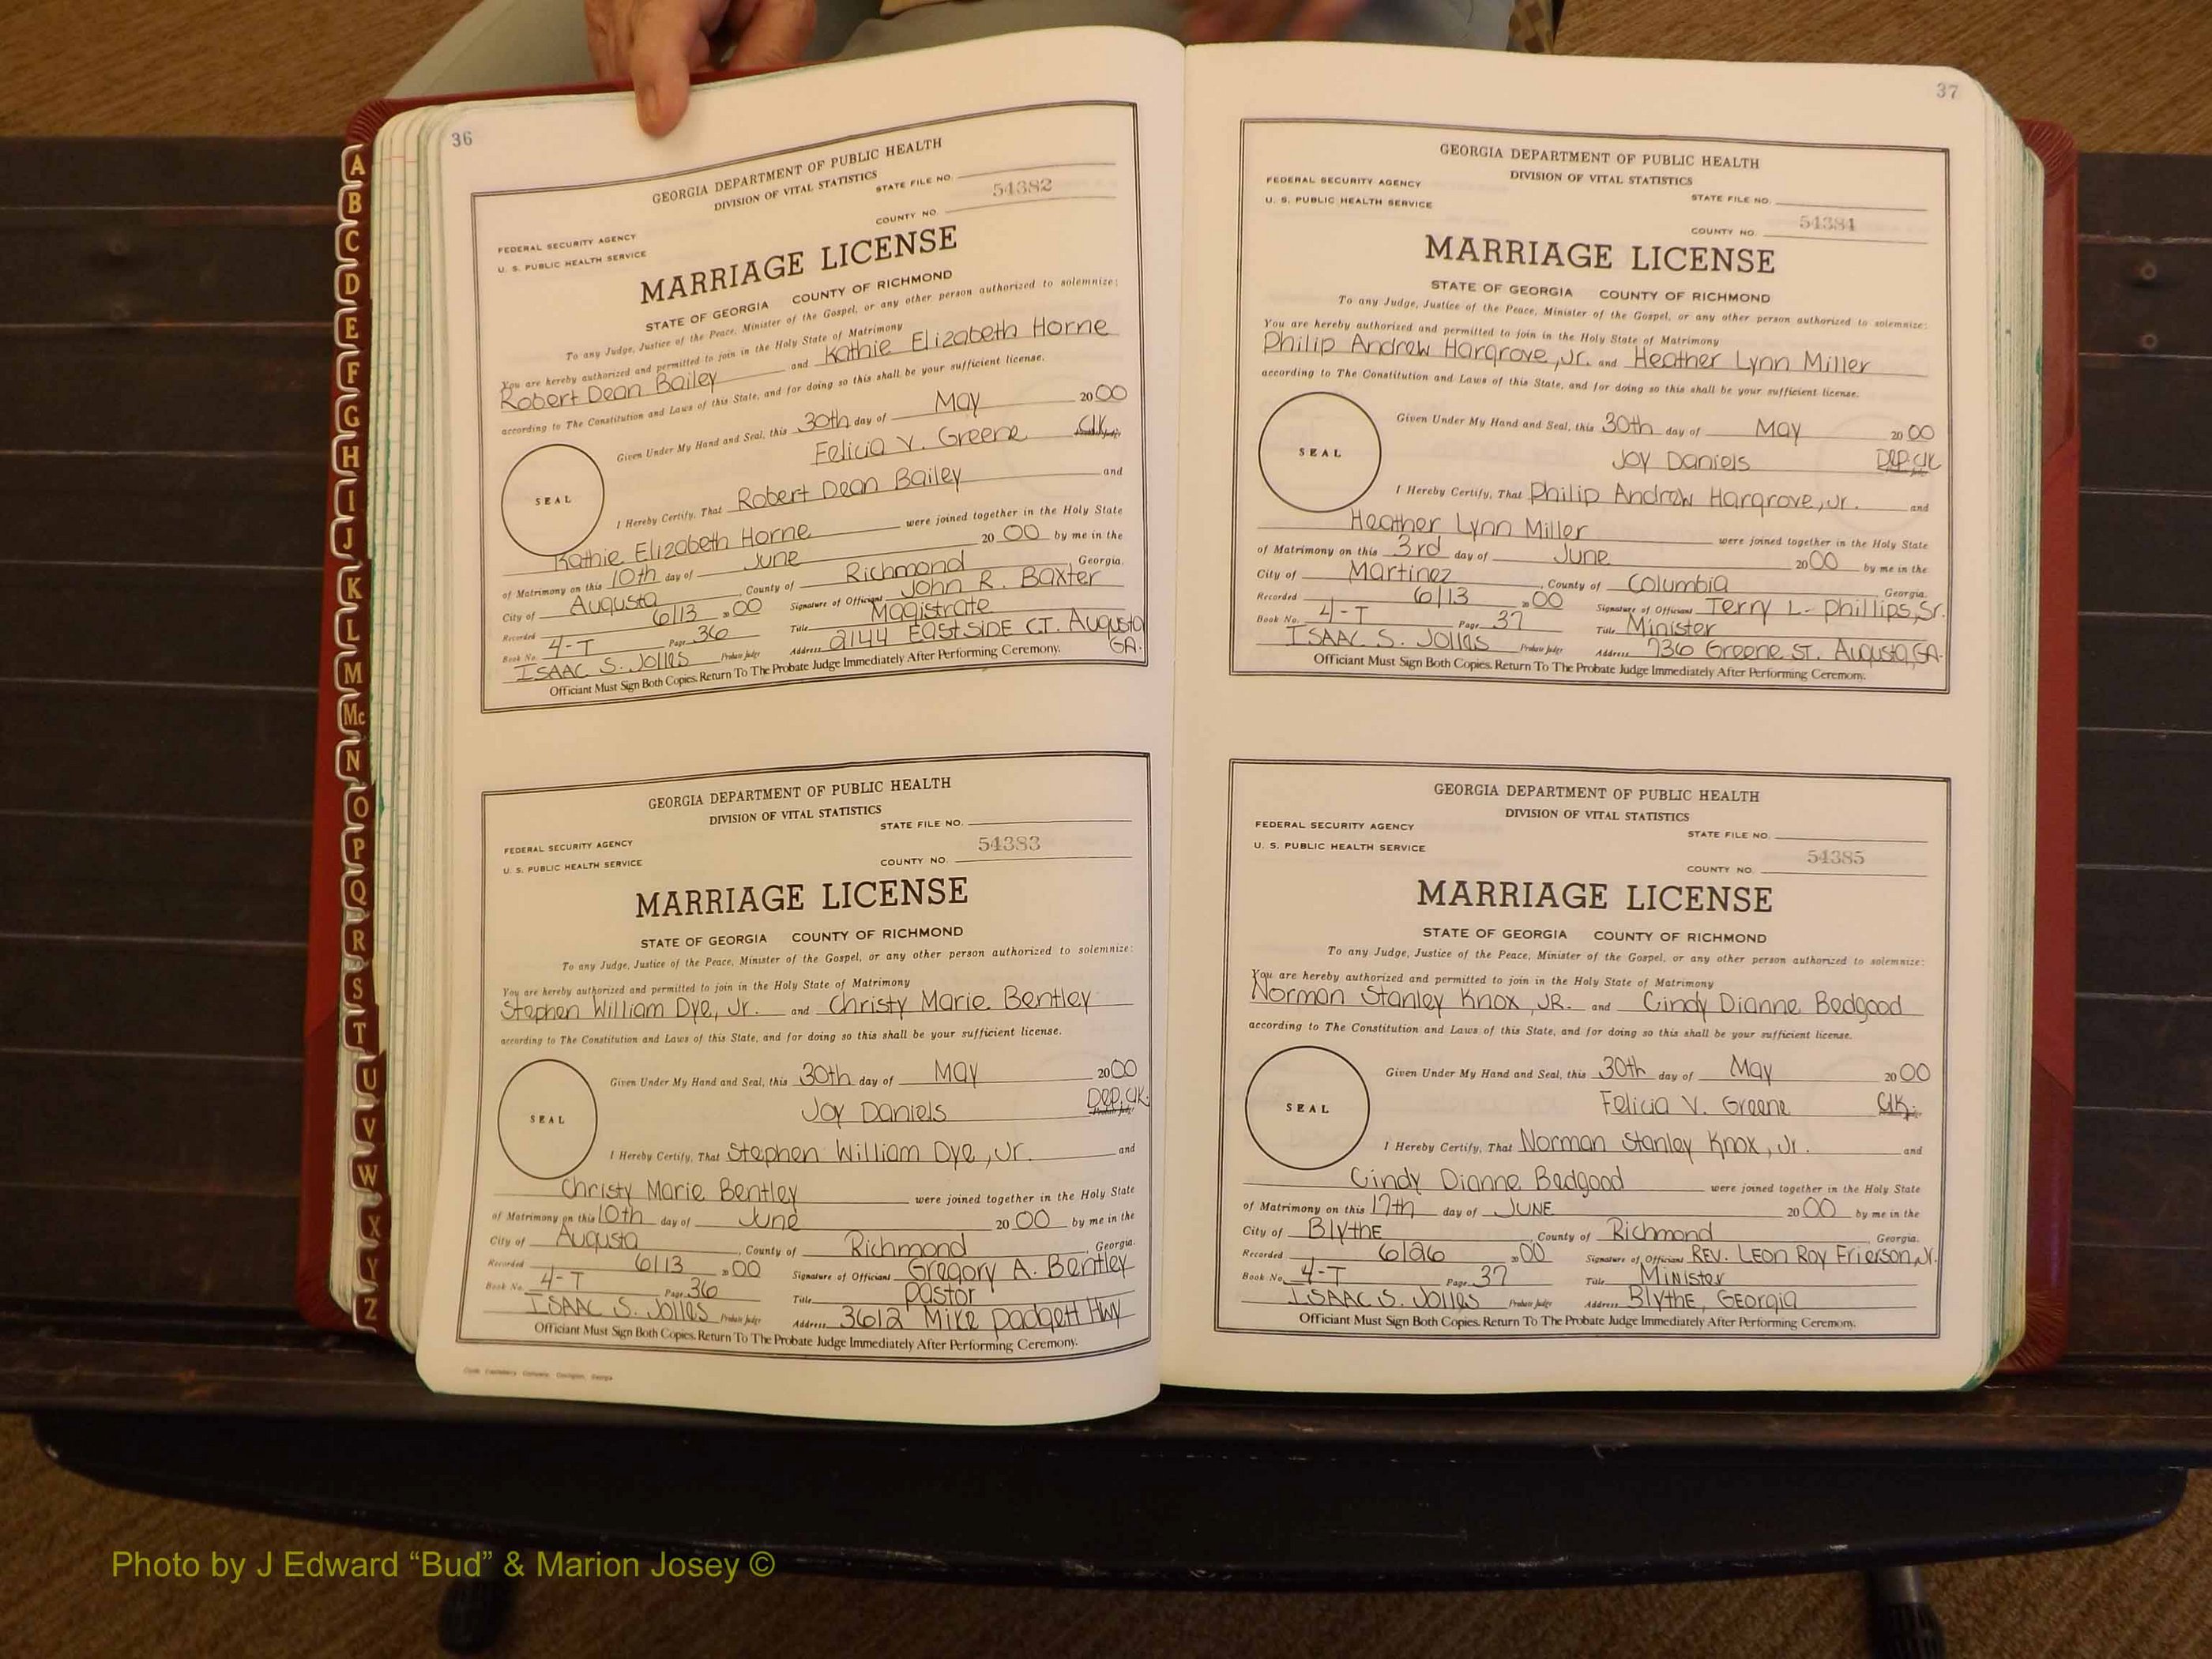 A
B
C
D
E
F
G
H
I
J
K
L
M
Mc
N
O
P
Q
R
S
T
U
V
W
X
Y
Z
36
GEORGIA DEPARTMENT OF PUBLIC HEALTH
DIVISION OF VITAL STATISTICS
STATE FILE NO.
FEDERAL SECURITY AGENCY
U. S. PUBLIC HEALTH SERVICE
COUNTY NO. 54382
MARRIAGE LICENSE
STATE OF GEORGIA COUNTY OF RICHMOND
To any Judge, Justice of the Peace, Minister of the Gospel, or any other person authorized to solemnize:
You are hereby authorized and permitted to join in the Holy State of Matrimony
Robert Dean Bailey and Kathie Elizabeth Horne
according to The Constitution and Laws of this State, and for doing so this shall be your sufficient license.
Given Under My Hand and Seal, this 30th day of May 20 00
Felicia V. Greene Clk.
SEAL
I Hereby Certify, That Robert Dean Bailey and
Kathie Elizabeth Horne were joined together in the Holy State
of Matrimony on this 10th day of June 20 00 by me in the
City of Augusta, County of Richmond Georgia.
Recorded 6/13 20 00 Signature of Officiant John R. Baxter
Book No. 4-T Page 36 Title Magistrate
ISAAC S. Jolles Probate Judge Address 2144 EASTSIDE CT. Augusta
GA.
Officiant Must Sign Both Copies. Return To The Probate Judge Immediately After Performing Ceremony.
GEORGIA DEPARTMENT OF PUBLIC HEALTH
DIVISION OF VITAL STATISTICS
STATE FILE NO.
FEDERAL SECURITY AGENCY
U. S. PUBLIC HEALTH SERVICE
COUNTY NO. 54383
MARRIAGE LICENSE
STATE OF GEORGIA COUNTY OF RICHMOND
To any Judge, Justice of the Peace, Minister of the Gospel, or any other person authorized to solemnize:
You are hereby authorized and permitted to join in the Holy State of Matrimony
Stephen William Dye, Jr. and Christy Marie Bentley
according to The Constitution and Laws of this State, and for doing so this shall be your sufficient license.
Given Under My Hand and Seal, this 30th day of May 20 00
Joy Daniels Dep. Clk.
SEAL
I Hereby Certify, That Stephen William Dye, Jr. and
Christy Marie Bentley were joined together in the Holy State
of Matrimony on this 10th day of June 20 00 by me in the
City of Augusta, County of Richmond, Georgia.
Recorded 6/13 20 00 Signature of Officiant Gregory A. Bentley
Book No. 4-T Page 36 Title Pastor
ISAAC S. Jolles Probate Judge Address 3612 Mike Padgett Hwy
Officiant Must Sign Both Copies. Return To The Probate Judge Immediately After Performing Ceremony.
37
GEORGIA DEPARTMENT OF PUBLIC HEALTH
DIVISION OF VITAL STATISTICS
FEDERAL SECURITY AGENCY
STATE FILE NO.
U. S. PUBLIC HEALTH SERVICE
COUNTY NO. 54384
MARRIAGE LICENSE
STATE OF GEORGIA COUNTY OF RICHMOND
To any Judge, Justice of the Peace, Minister of the Gospel, or any other person authorized to solemnize:
You are hereby authorized and permitted to join in the Holy State of Matrimony
Philip Andrew Hargrove, Jr. and Heather Lynn Miller
according to The Constitution and Laws of this State, and for doing so this shall be your sufficient license.
Given Under My Hand and Seal, this 30th day of May 20 00
Joy Daniels Dep. Clk
SEAL
I Hereby Certify, That Philip Andrew Hargrove, Jr. and
Heather Lynn Miller were joined together in the Holy State
of Matrimony on this 3rd day of June 20 00 by me in the
City of Martinez, County of Columbia Georgia.
Recorded 6/13 20 00 Signature of Officiant Terry L. Phillips, Sr.
Book No. 4-T Page 37 Title Minister
ISAAC S. Jolles Probate Judge Address 736 Greene ST. Augusta, GA.
Officiant Must Sign Both Copies. Return To The Probate Judge Immediately After Performing Ceremony.
GEORGIA DEPARTMENT OF PUBLIC HEALTH
DIVISION OF VITAL STATISTICS
FEDERAL SECURITY AGENCY
STATE FILE NO.
U. S. PUBLIC HEALTH SERVICE
COUNTY NO. 54385
MARRIAGE LICENSE
STATE OF GEORGIA COUNTY OF RICHMOND
To any Judge, Justice of the Peace, Minister of the Gospel, or any other person authorized to solemnize:
You are hereby authorized and permitted to join in the Holy State of Matrimony
Norman Stanley Knox, JR. and Cindy Dianne Bedgood
according to The Constitution and Laws of this State, and for doing so this shall be your sufficient license.
Given Under My Hand and Seal, this 30th day of May 20 00
Felicia V. Greene Clk.
SEAL
I Hereby Certify, That Norman Stanley Knox, Jr. and
Cindy Dianne Bedgood were joined together in the Holy State
of Matrimony on this 17th day of JUNE 20 00 by me in the
City of Blythe, County of Richmond Georgia.
Recorded 6/26 20 00 Signature of Officiant REV. Leon Roy Frierson, Jr.
Book No. 4-T Page 37 Title Minister
ISAAC S. Jolles Probate Judge Address Blythe, Georgia
Officiant Must Sign Both Copies. Return To The Probate Judge Immediately After Performing Ceremony.
Photo by J Edward “Bud” & Marion Josey ©